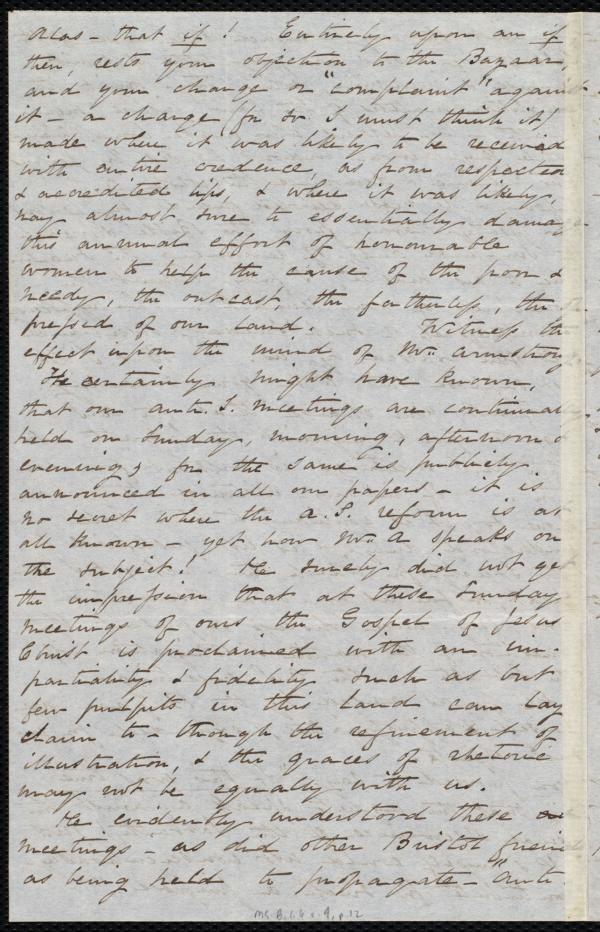 Alas - that if! Entirely upon an if
then, rests your objection to the Bazaar,
and your charge or "complaint" against
it - a charge (for so I must think it)
made where it was likely to be received
with entire credence, as from respected
& accredited lips, & where it was likely,
nay almost sure to essentially damage
this annual effort of honourable
women to help the cause of the poor &
needy, the outcast, the fatherless, the
pressed of our land. Witness the
effect upon the mind of Mr. Armstrong
He certainly might have known,
that our anti.S. meetings are continually
held on Sunday, morning, afternoon &
evening, for the same is publicly
announced in all our papers - it is
no secret where the A.S. reform is at
all known - yet how Mr. A speaks on
the subject! He surely did not get
the impression that at these Sunday
meetings of ours the Gospel of Jesus
Christ is proclaimed with an im-
partiality & fidelity such as but
few pulpits in this land can lay
claim to - though the refinement of
illustration, & the graces of rhetoric
may not be equally with us.
He evidently understood these
meetings - as did other Bristol friend
as being held to propagate - "anti-
Ms. B.1.6 v. 9, p. 12